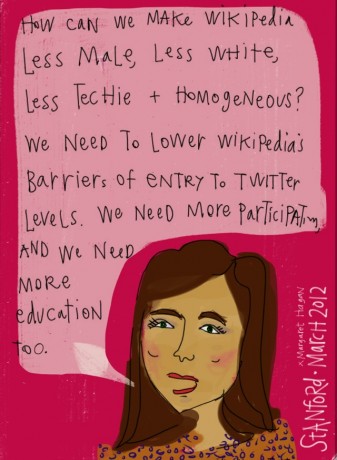 How can we make wikipedia
Less Male, Less white,
Less Techie + Homogeneous?
we need to lower wikipedia's
Barriers of entry to Twitter
levels. we need more participating,
and we need
more
education
too.
x Margaret Hagan
Stanford • March 2012